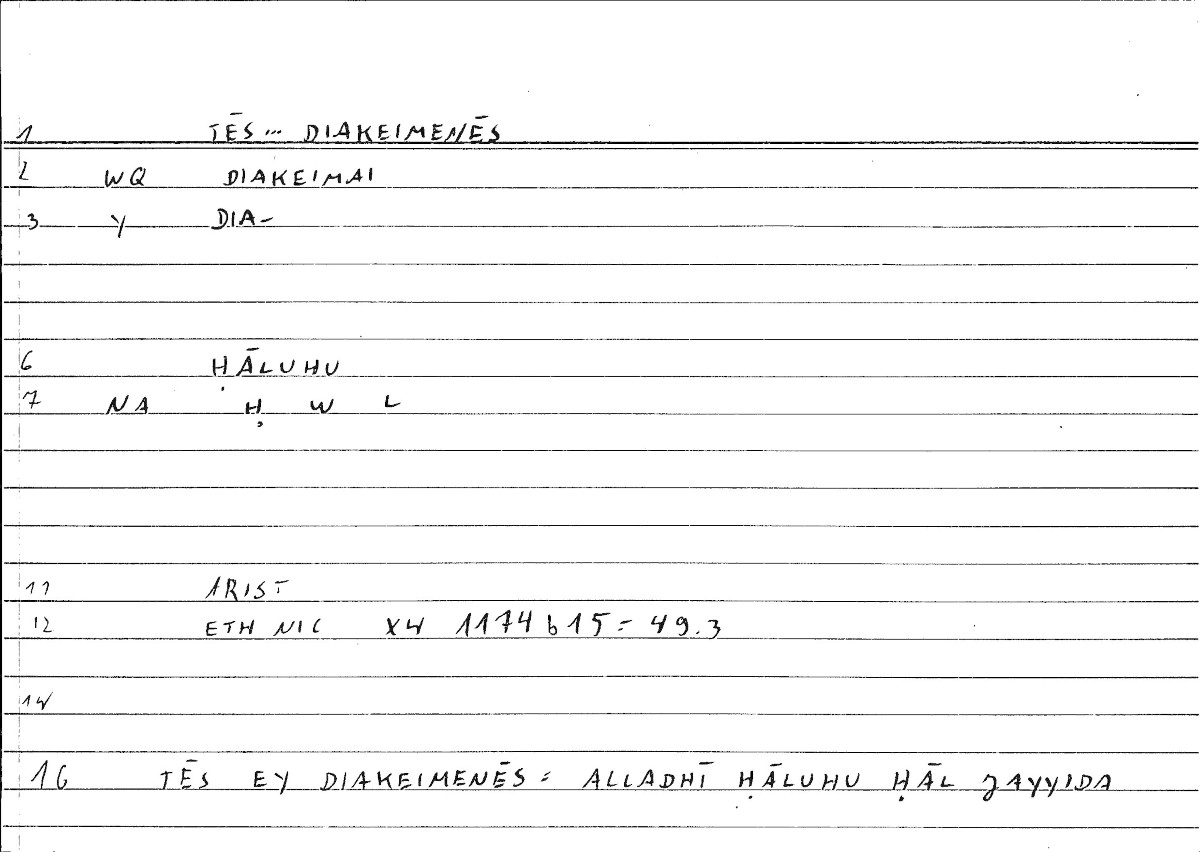 1 TĒS... DIAKEIMENĒS
2 WQ DIAKEIMAI
3 Y DIA-
6 ḤĀLUHU
7 NA Ḥ W L
11 ARIST
12 ETH NIC X4 1174 b 15 = 49.3
14
16 TĒS EY DIAKEIMENĒS = ALLADHĪ ḤĀLUHU ḤĀL JAYYIDA